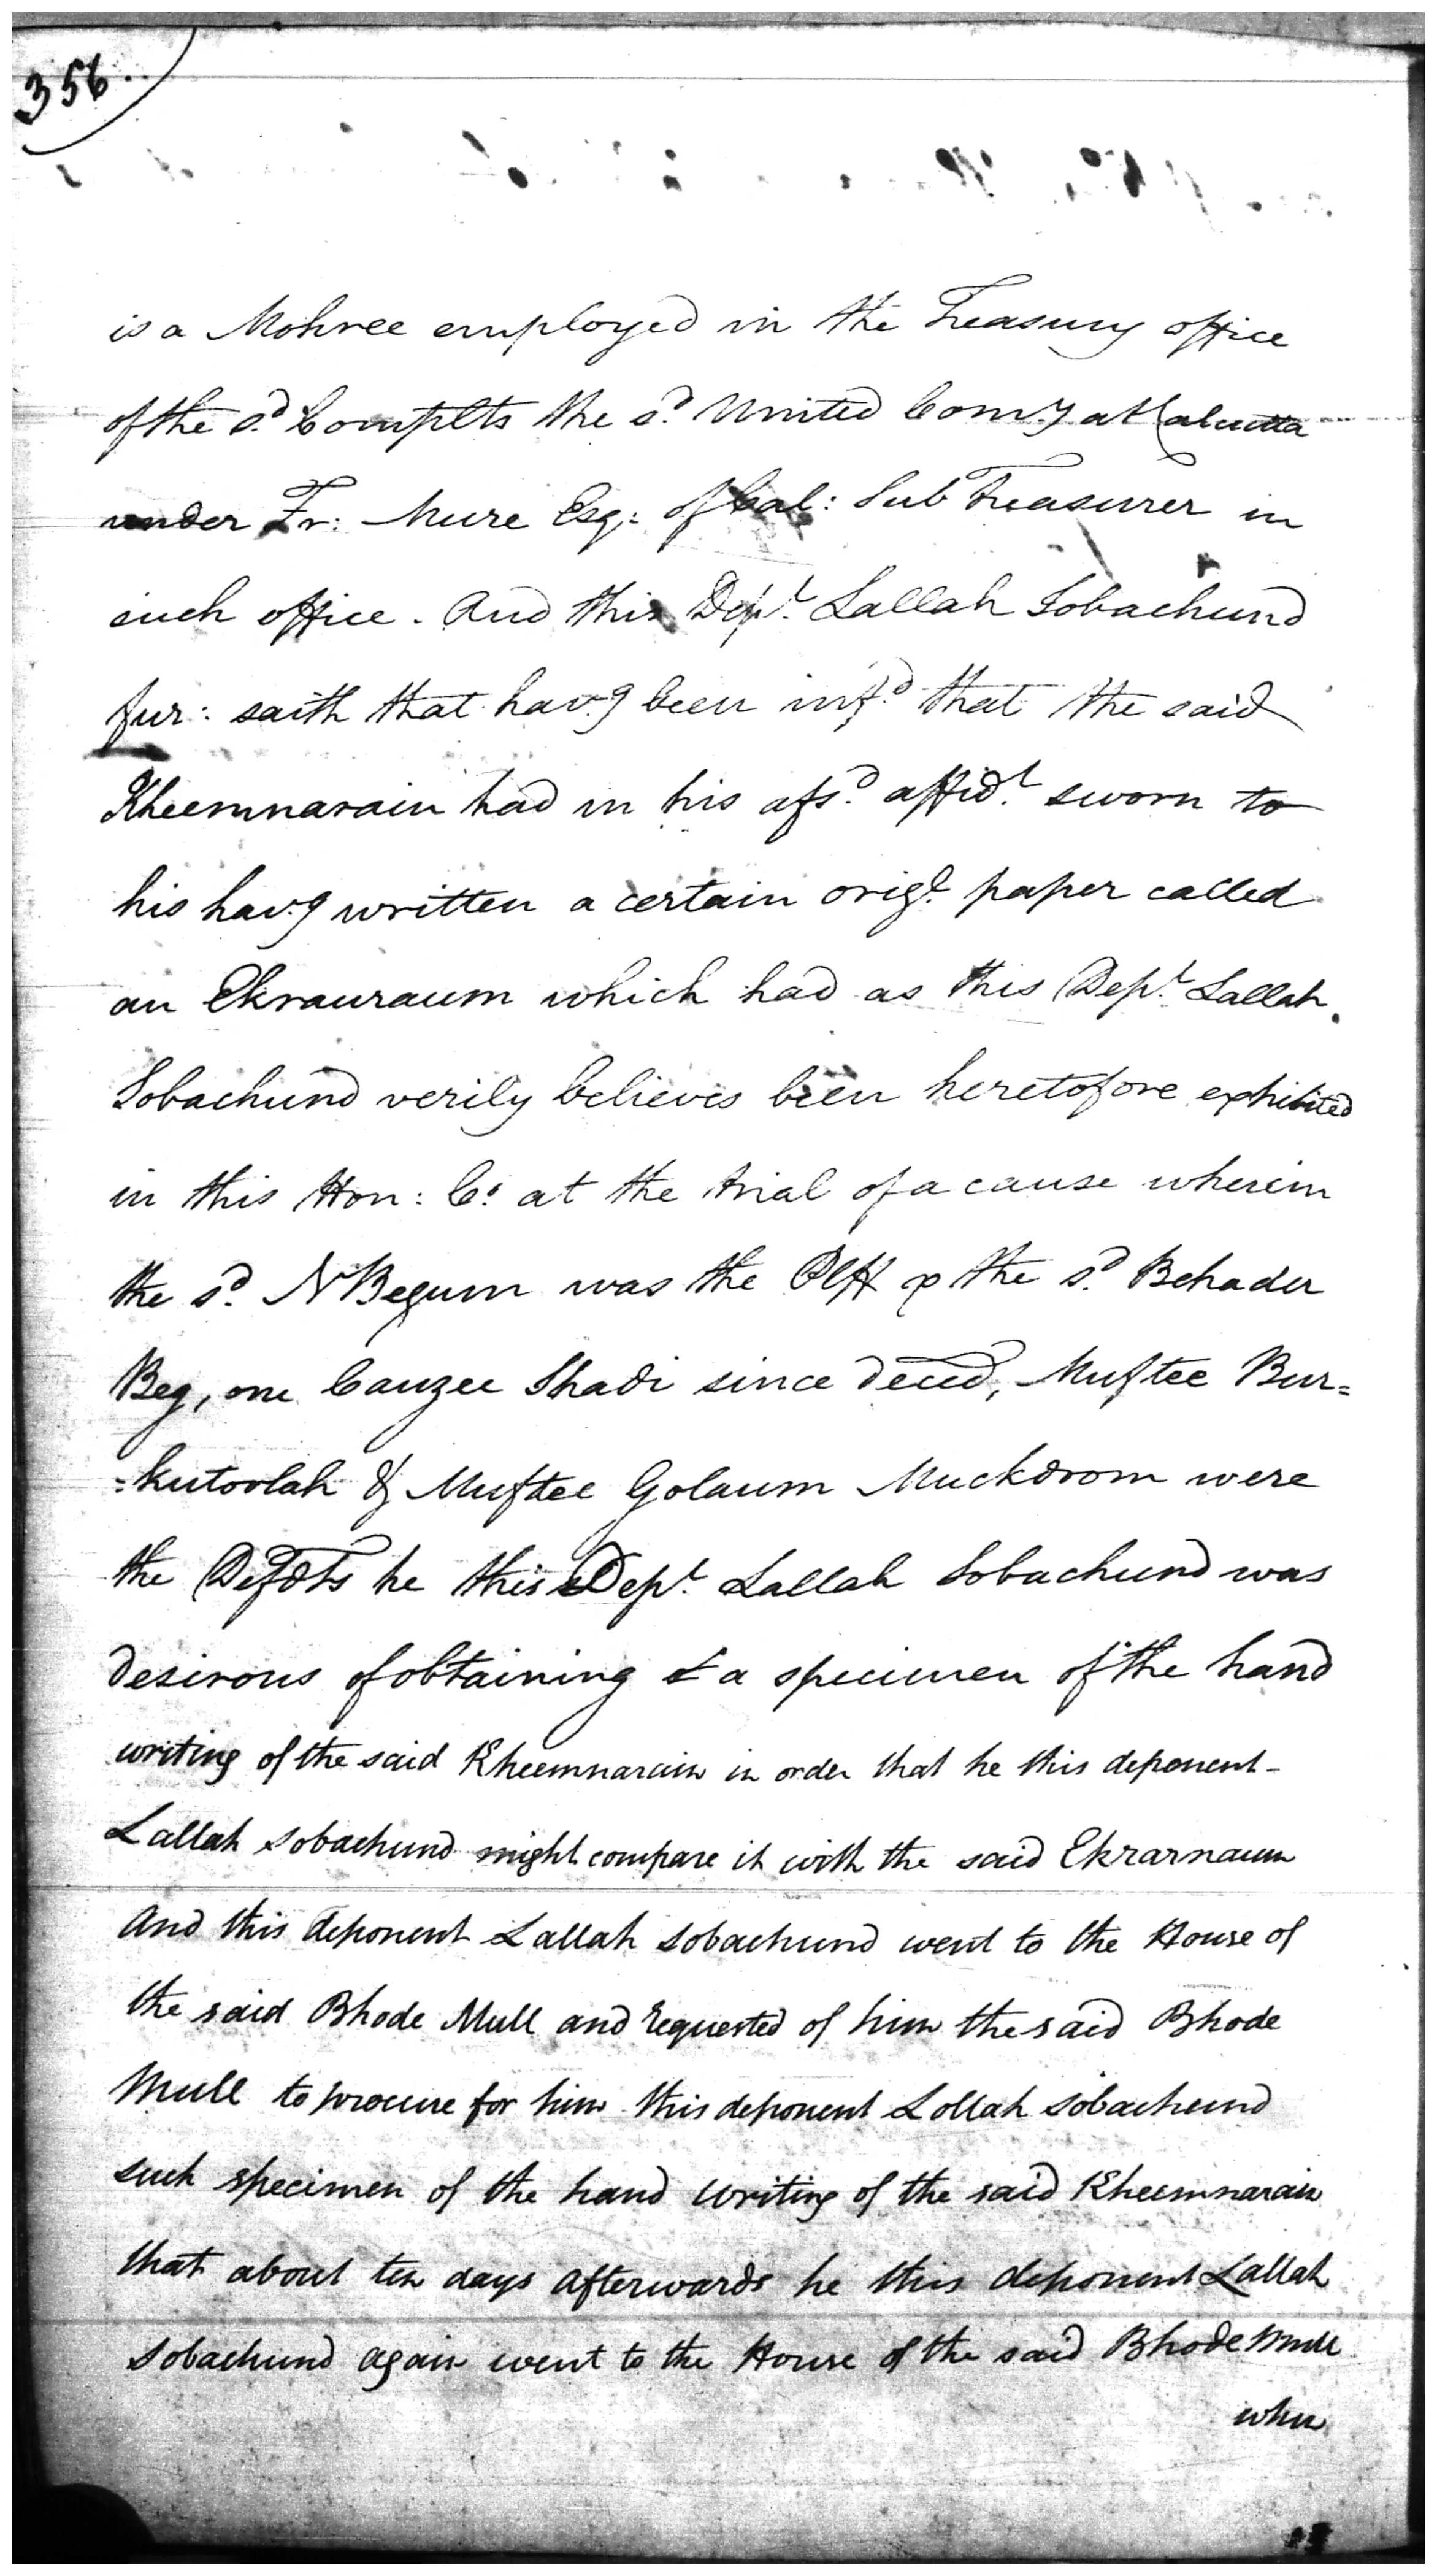 356
is a Mohree employed in the Treasury office
of the sd. Complts the sd. United Comy. at Calcutta
under Fr: Mure Esq: of Cal: Sub Treasurer in
such office. And this Dept. Lallah Sobachund
fur: saith that havg. been infd. that the said
Kheemnarain had in his afsd. affidt. sworn to
his havg. written a certain origl. paper called
an Ekrauraum which had as this Dept. Lallah
Sobachund verily believes been heretofore exhibited
in this Hon: Ct. at the trial of a cause wherein
the sd. N Begum was the Plff & the sd. Behader
Beg, one Cauzee Shadi since deced, Muftee Bur=
=kutoolah & Muftee Golaum Muckdoom were
the Defdts he this Dept. Lallah Sobachund was
desirous of obtaining a specimen of the hand
writing of the said Kheemnarain in order that he this deponent-
Lallah Sobachund might compare it with the said Ekrarnaum
And this deponent Lallah Sobachund went to the House of
the said Bhode Mull and requested of him the said Bhode
Mull to procure for him this deponent Lollah Sobachund
such specimen of the hand writing of the said Kheemnarain
that about ten days afterwards he this deponent Lallah
Sobachund again went to the House of the said Bhode Mull
when